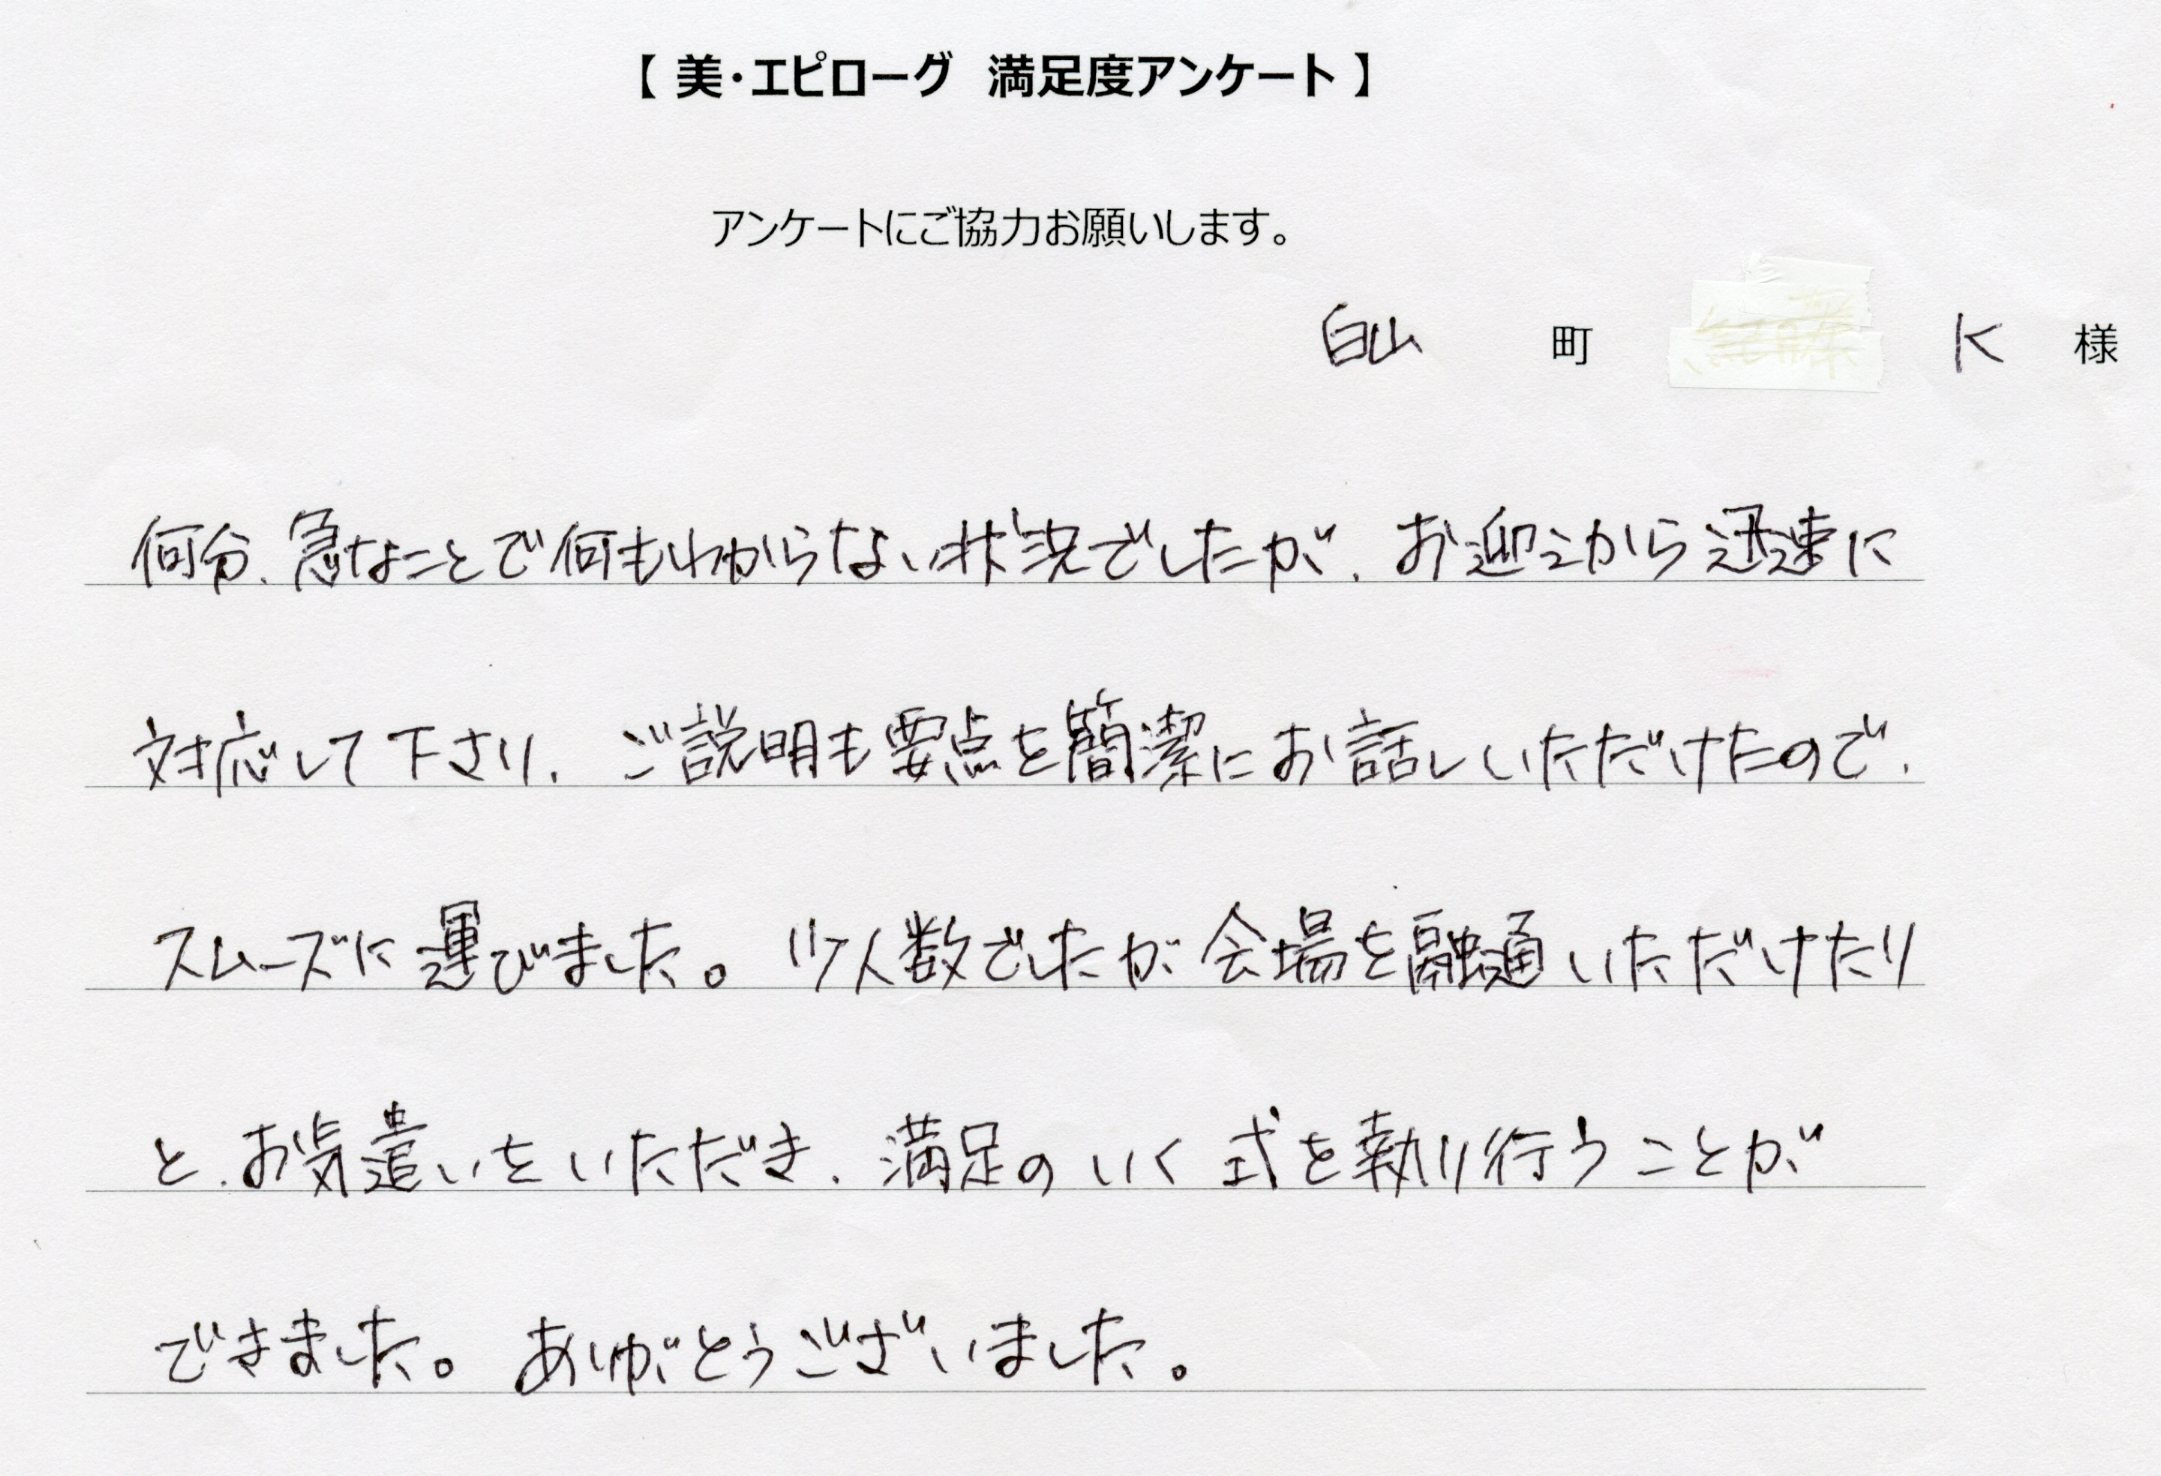 【 美・エピローグ 満足度アンケート 】
アンケートにご協力お願いします。
白山 町 K 様
何分、急なことで何もわからない状況でしたが、お迎えから迅速に
対応して下さり、ご説明も要点を簡潔にお話しいただけたので、
スムーズに運びました。少人数でしたが会場を融通いただけたり
と、お気遣いをいただき、満足のいく式を執り行うことが
できました。ありがとうございました。